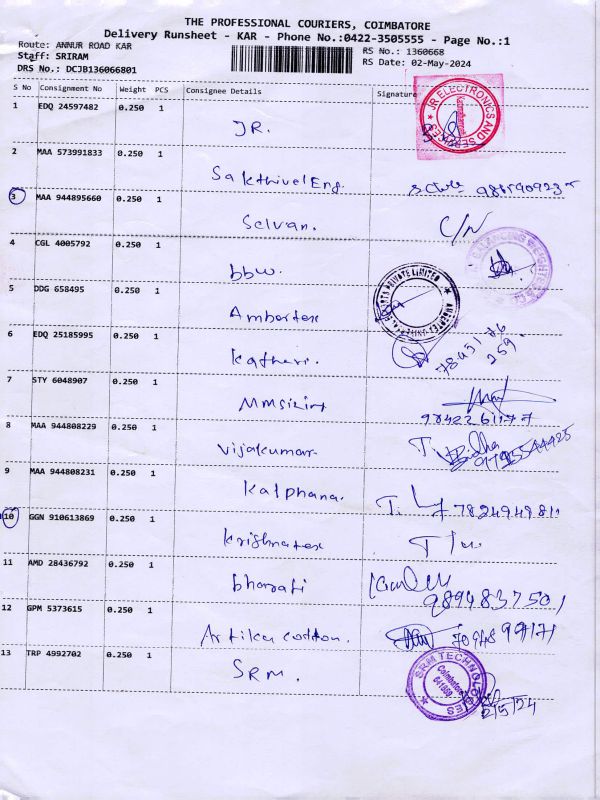 THE PROFESSIONAL COURIERS, COIMBATORE
Delivery Runsheet - KAR - Phone No.:0422-3505555 - Page No.:1
Route: ANNUR ROAD KAR
RS No.: 1360668
Staff: SRIRAM
RS Date: 02-May-2024
DRS No.: DCJB136066801
S No Consignment No Weight PCS Consignee Details Signature
1 EDQ 24597482 0.250 1 JR. JR ELECTRONICS AND SERVICES
2 MAA 573991833 0.250 1 Sakthivel Eng.
3 MAA 944895660 0.250 1 Selvan. C/N
4 CGL 4005792 0.250 1 bbw.
5 DDG 658495 0.250 1 Ambertex PRIVATE LIMITED
6 EDQ 25185995 0.250 1 Katheri.
7 STY 6048907 0.250 1 9842261177
8 MAA 944808229 0.250 1 Vijakumar.
9 MAA 944808231 0.250 1 Kalphana. 7824949811
10 GGN 910613869 0.250 1 Krishnatex
11 AMD 28436792 0.250 1 bharati 9894837501
12 GPM 5373615 0.250 1 Artika cotton.
13 TRP 4992702 0.250 1 SRM. SRM TECHNOLOGIES Coimbatore
2/5/24